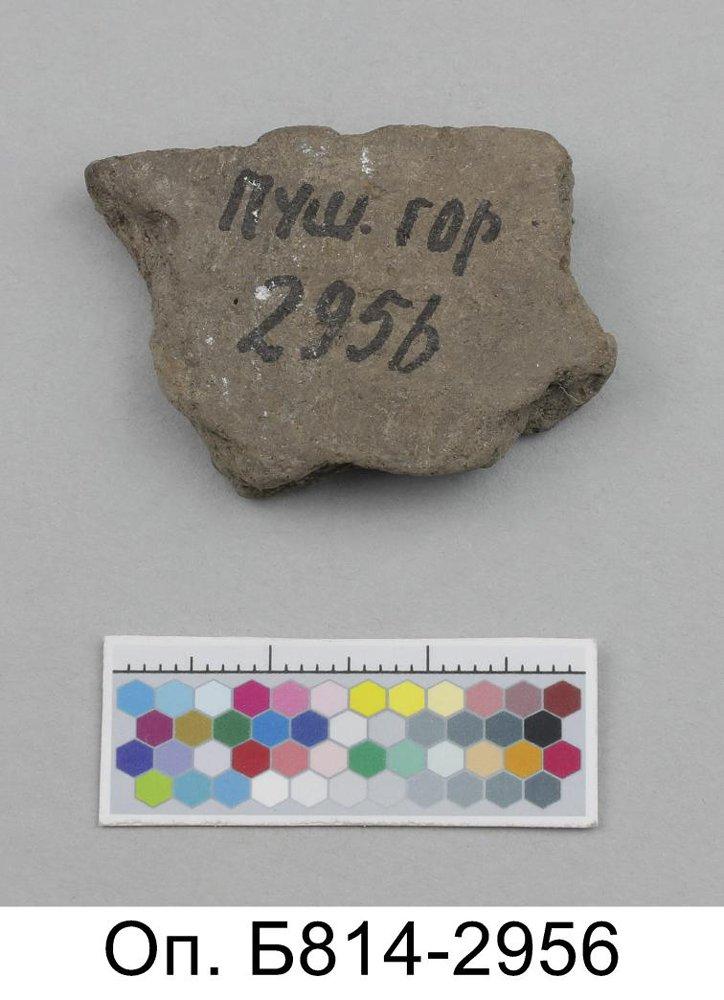 ПУШ. ГОР
2956
Оп. Б814-2956